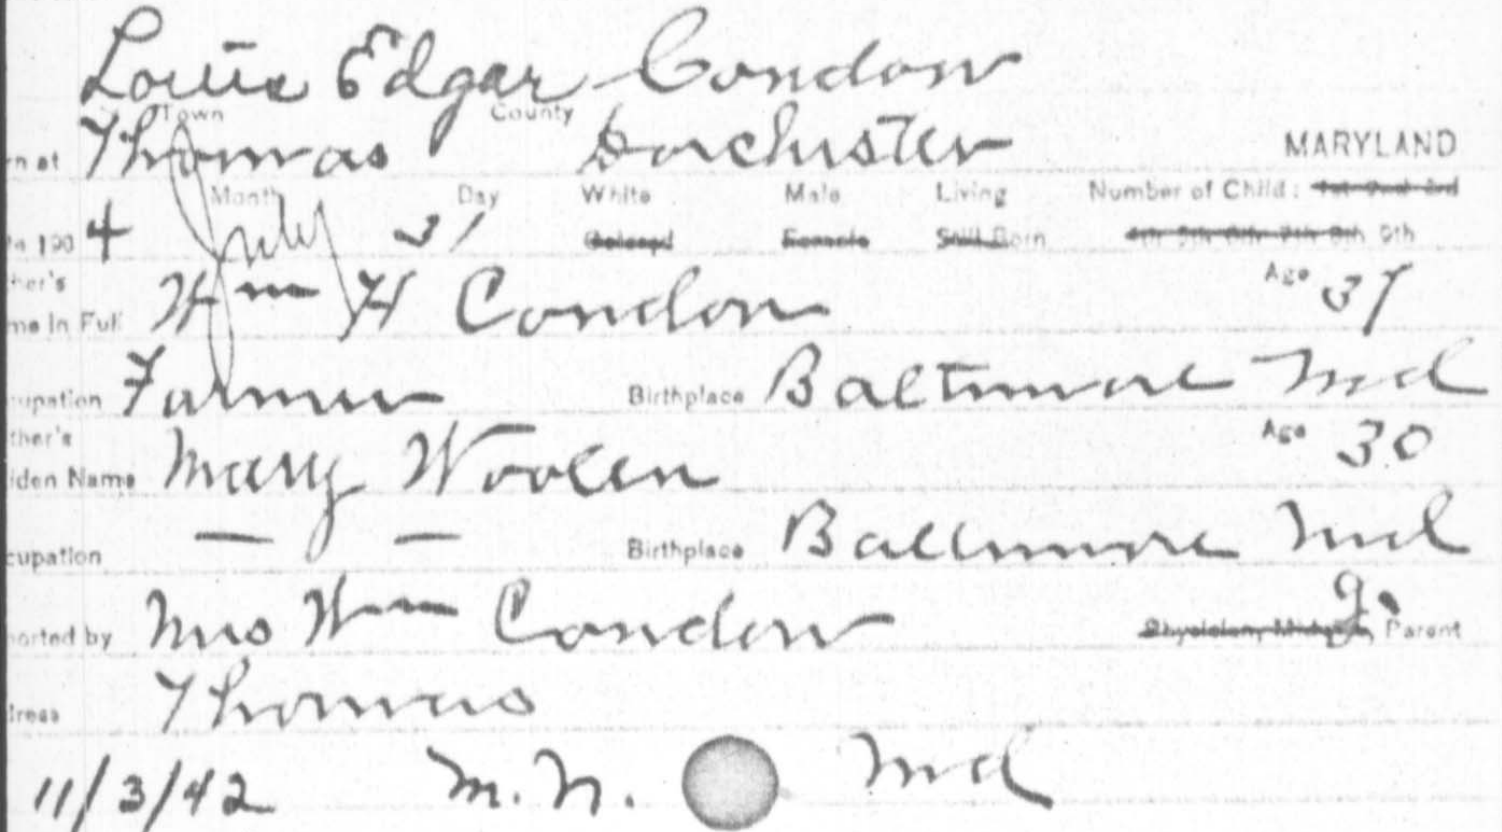 Louie Edgar Condon
Town County
n at Thomas Dorchister MARYLAND
Month Day White Male Living Number of Child: 1st 2nd 3rd
190 4 July 31 Colored Female Still Born 4th 5th 6th 7th 8th 9th
her's Age 37
me in Full Wm H Condon
upation Farmer Birthplace Baltimore Md
ther's Age 30
iden Name Mary Woolen
cupation — — Birthplace Baltimore Md
orted by Mrs Wm Condon Physician, Midwife, Parent
dress Thomas
11/3/42 M.N. Md